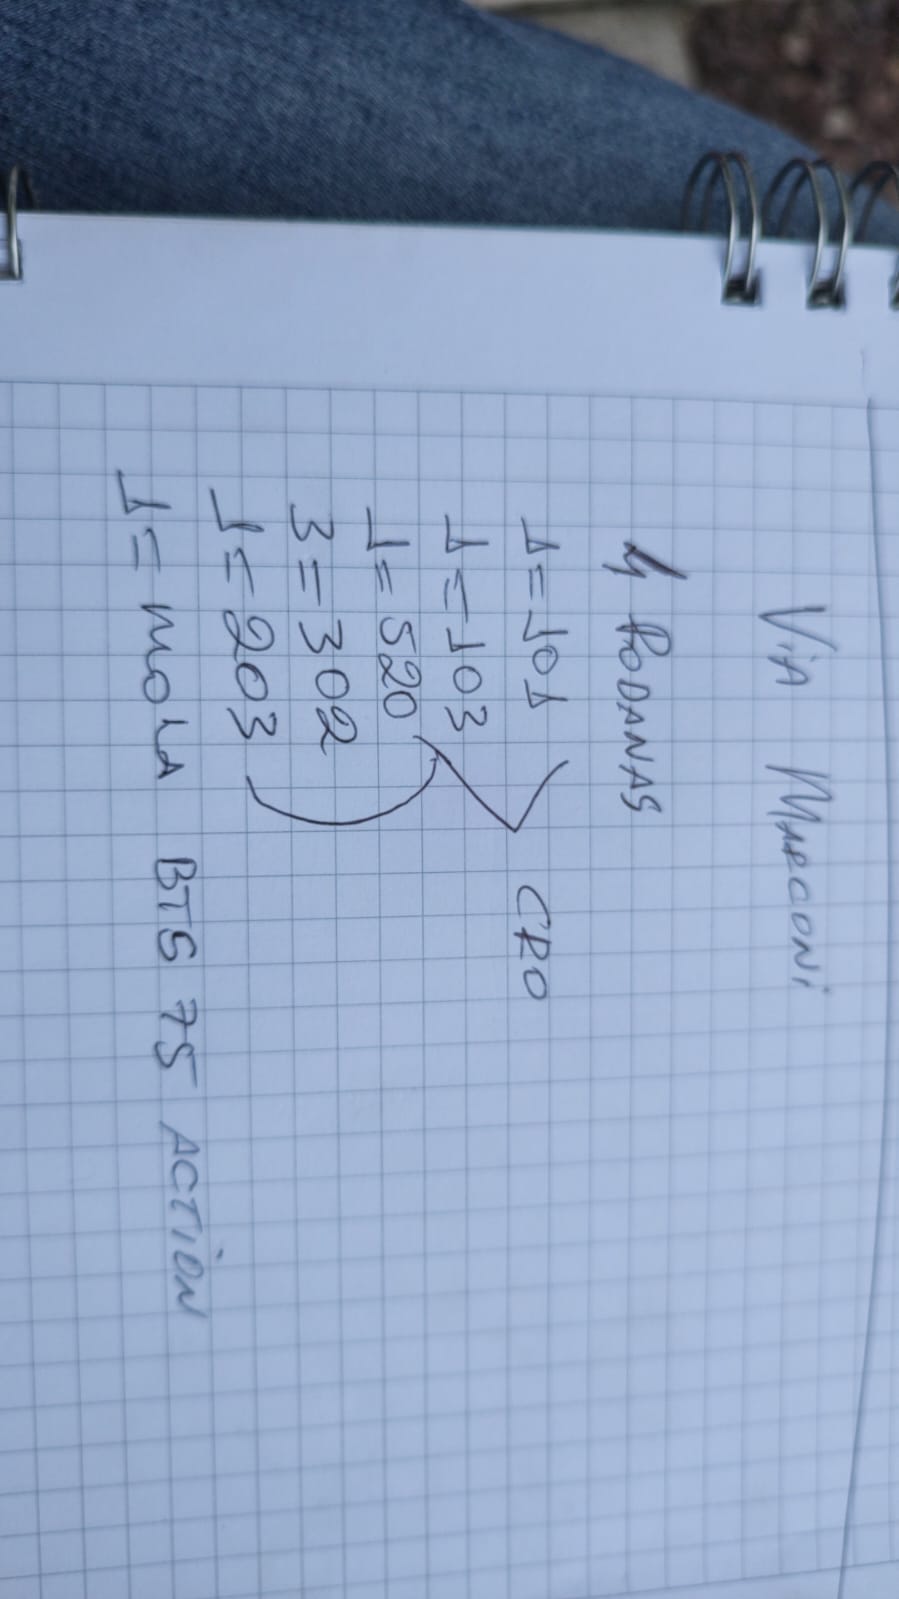 ViA MARCONi
4 RODANAS
1 = 101
1 = 103 CRO
1 = 520
3 = 302
1 = 203
1 = MOLA BTS 75 ACTiON